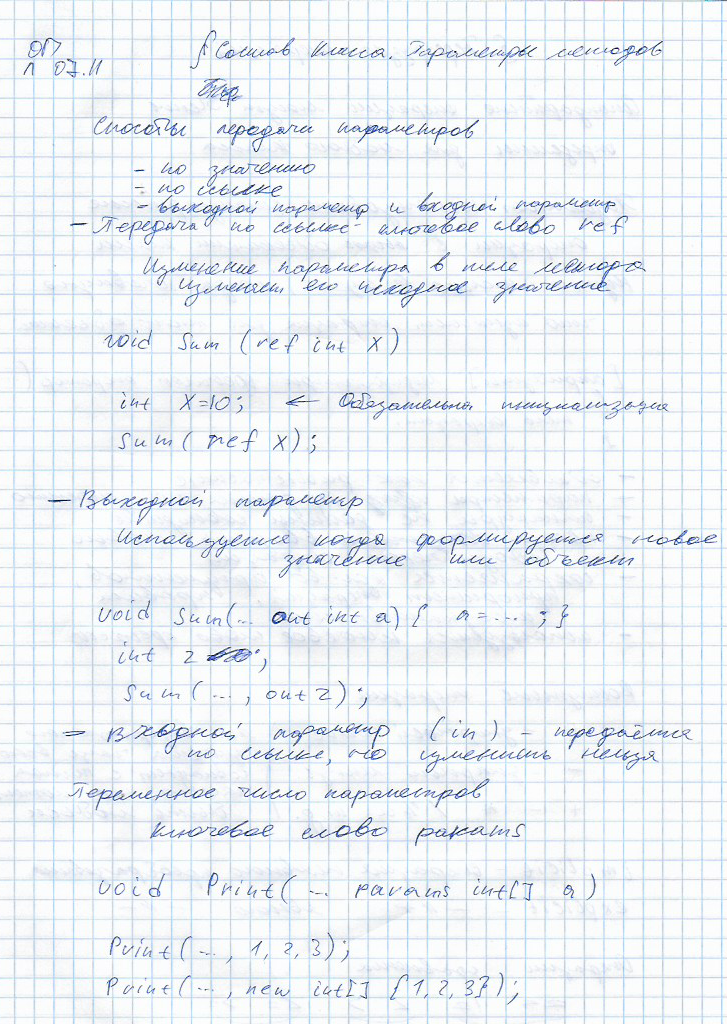 ОП
Л 07.11
§ Состав класса. Параметры методов
Способы передачи параметров
- по значению
- по ссылке
- выходной параметр и входной параметр
- Передача по ссылке - ключевое слово ref
Изменение параметра в теле метода
изменяет его исходное значение
void Sum (ref int X)
int X=10; ← Обязательна инициализация
Sum( ref X);
- Выходной параметр
Используется когда формируется новое
значение или объект
void Sum(... out int a) { a = ... ; }
int z ;
Sum( ..., out z);
- Входной параметр (in) - передаётся
по ссылке, но изменить нельзя
Переменное число параметров
Ключевое слово params
void Print( ... params int[] a)
Print( ..., 1, 2, 3);
Print( ..., new int[] {1, 2, 3});